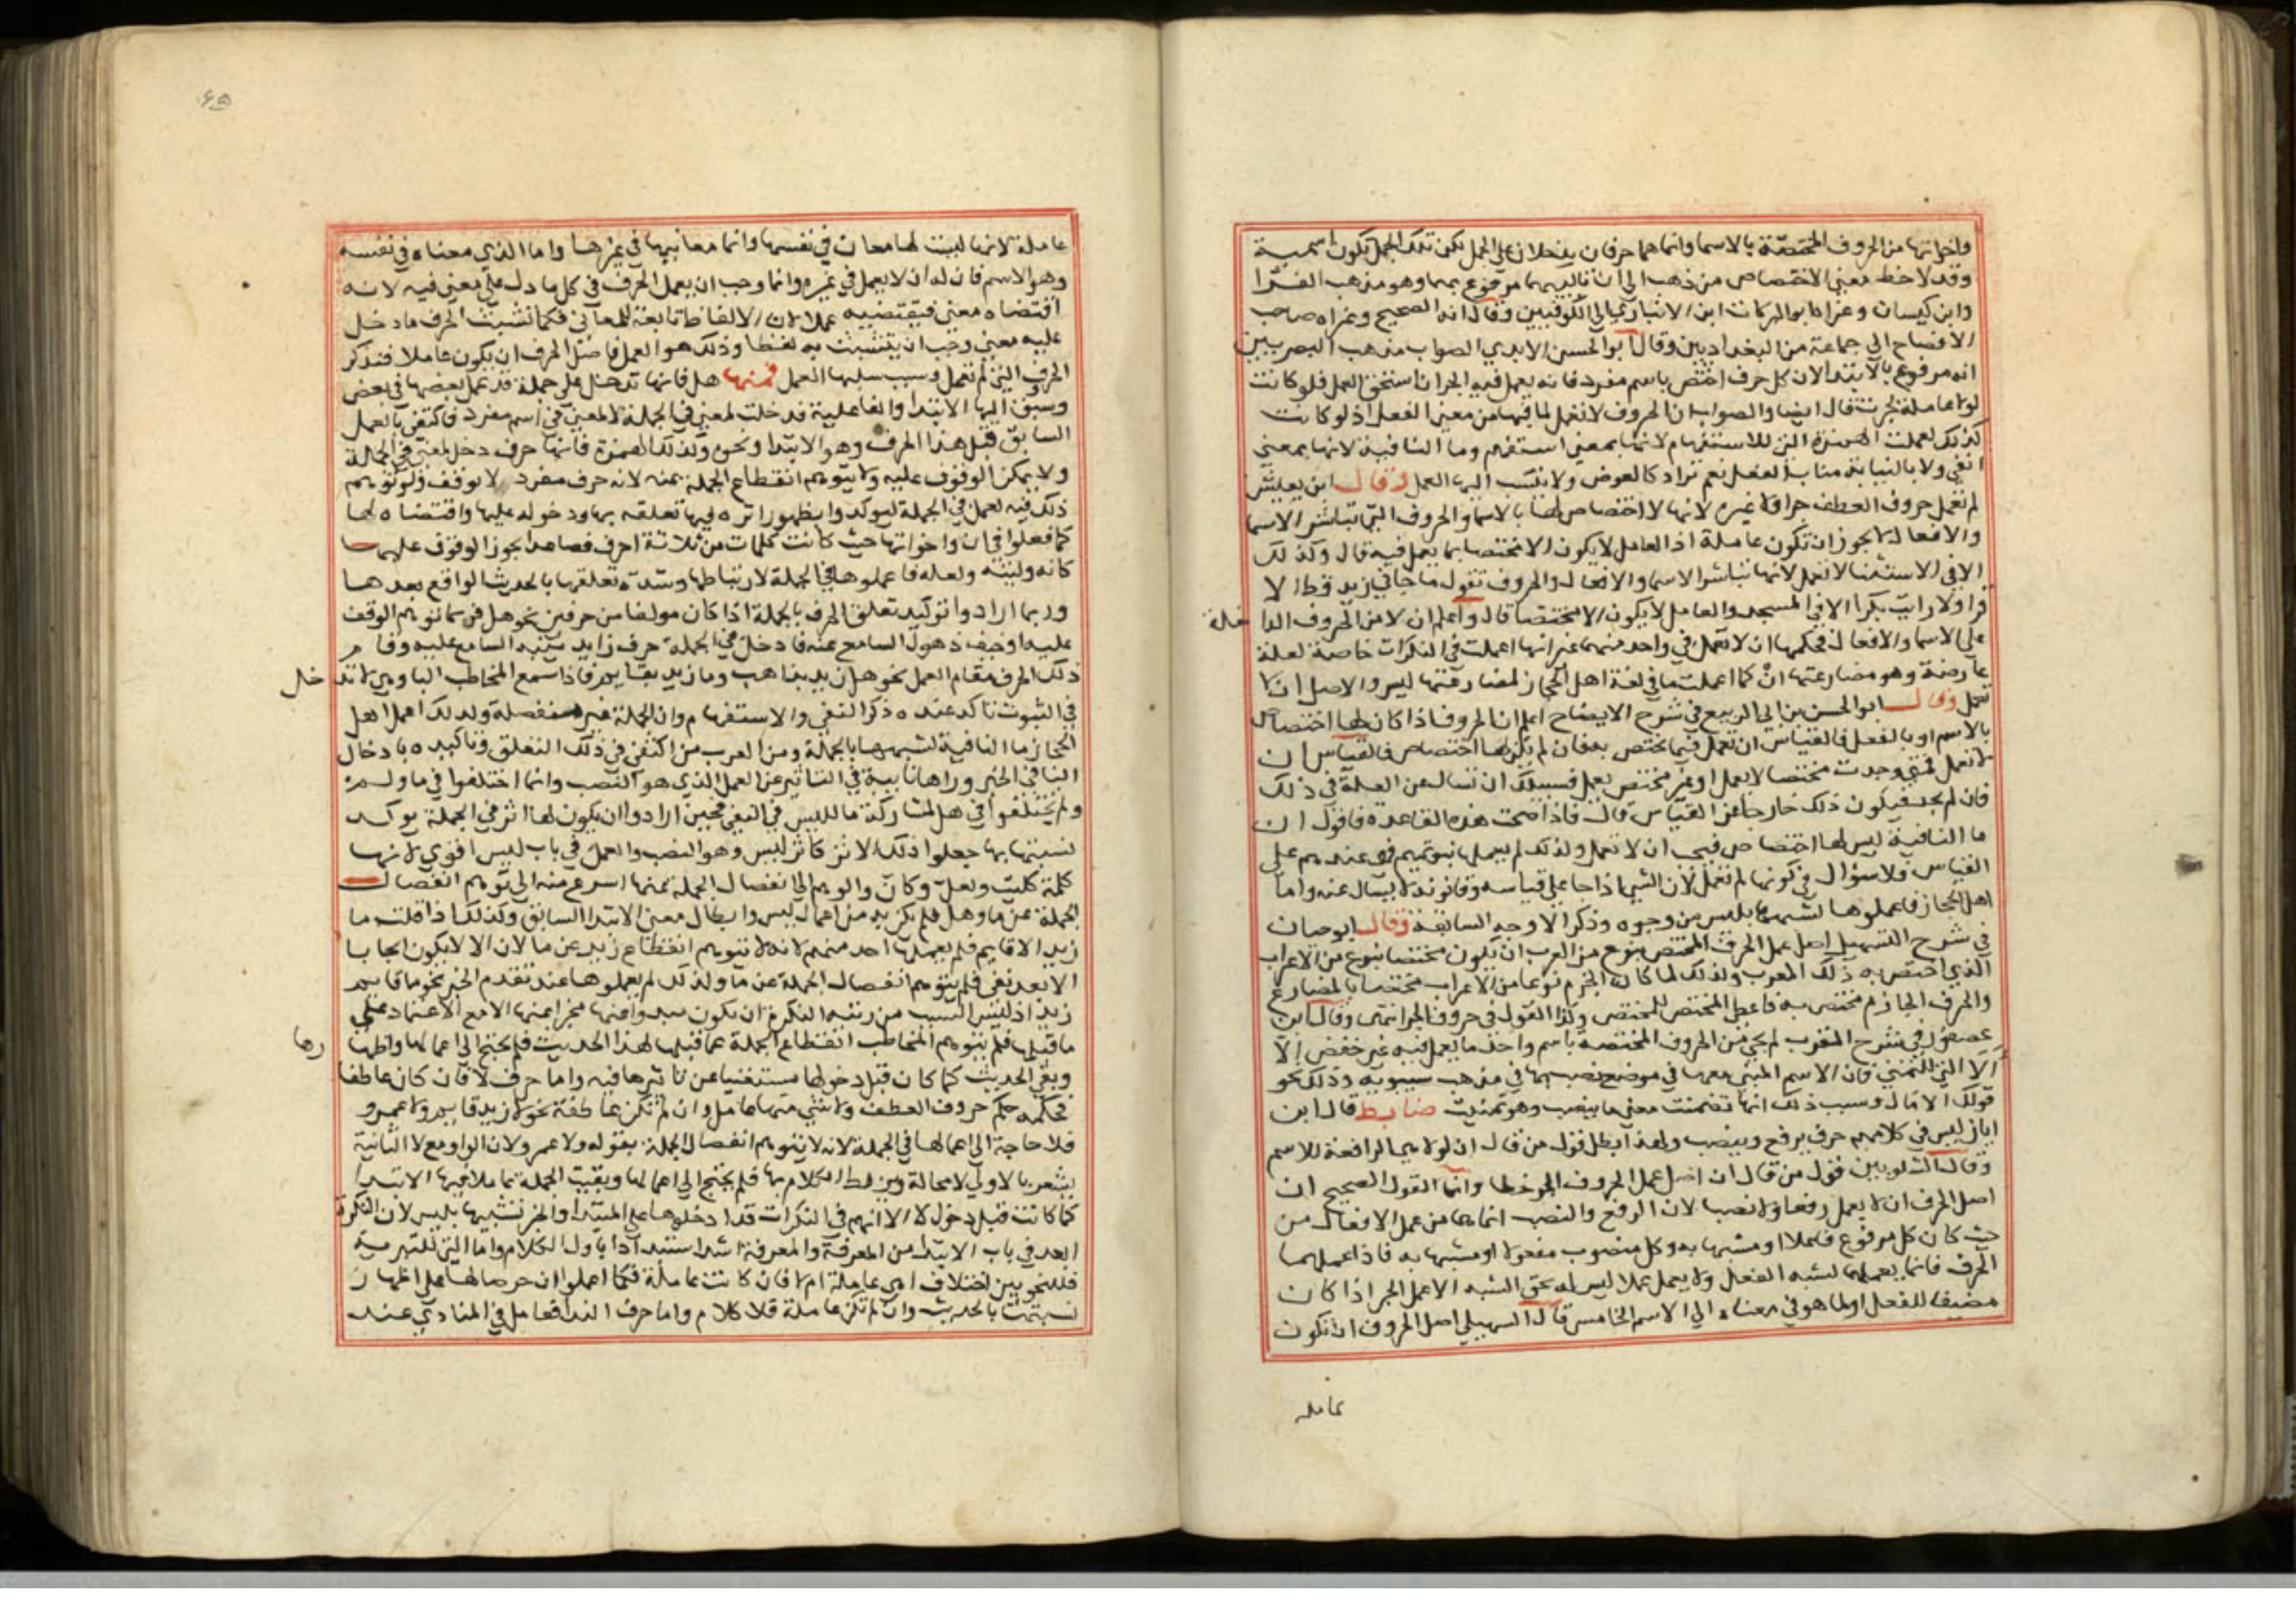 واخواتها من الحروف المختصة بالاسما وانما هما حرفان يدخلان على الجمل لكن تلك الجمل تكون اسمية
وقد لاحظ معنى الاختصاص من ذهب الى ان تاليهما مرفوع بهما وهو مذهب الفرا
وابن كيسان وعزاه ابو البركات ابن الانباري الى الكوفيين وقال انه الصحيح وعزاه صاحب
الافصاح الى جماعة من البغداديين وقال ابو الحسن الابدي الصواب مذهب البصريين
انه مرفوع بالابتدا لان كل حرف اختص باسم مفرد فانه يعمل فيه الجر ان استحق العمل فلو كانت
لولا عاملة لجرت قال ايضا والصواب ان الحروف لا تعمل لما فيها من معنى الفعل اذ لو كانت
كذلك لعملت الهمزة التي للاستفهام لانها بمعنى استفهم وما النافية لانها بمعنى
انفي ولا بالنيابة مناب الفعل نعم تراد كالعوض ولا ينسب اليها العمل وقال ابن يعيش
لم تعمل حروف العطف جرا ولا غيره لانها لا اختصاص لها بالاسما والحروف التي تباشر الاسما
والافعال لا يجوز ان تكون عاملة اذ العامل لا يكون الا مختصا بما يعمل فيه قال وكذلك
الا في الاستثنا لا تعمل لانها تباشر الاسما والافعال والحروف تقول ما جاني زيد قط الا
قرا ولا رايت بكرا الا في المسجد والعامل لا يكون الا مختصا قال واعلم ان لا من الحروف الدا
خلة
على الاسما والافعال فحكمها ان لا تعمل في واحد منهما غير انها اعملت في النكرات خاصة لعلة
عارضة وهو مضارعتها ان كما اعملت ما في لغة اهل الحجاز لمضارعتها ليس والاصل ان لا
تعمل وقال ابو الحسن بن ابي الربيع في شرح الايضاح اعلم ان الحروف اذا كان لها اختصاص
بالاسم او بالفعل فالقياس ان تعمل فيما تختص به فان لم يكن لها اختصاص فالقياس ان
لا تعمل فمتى وجدت مختصا لا يعمل او غير مختص يعمل فسبيلك ان تسال عن العلة في ذلك
فان لم تجد فيكون ذلك خارجا عن القياس قال فاذا صحت هذه القاعدة فاقول ان
ما النافية ليس لها اختصاص فيجب ان لا تعمل ولذلك لم يعملها بنو تميم فهي عندهم على
القياس فلا سؤال في كونها لم تعمل لان الشي اذا جا على قياسه وقانونه لا يسال عنه واما
اهل الحجاز فاعملوها لشبهها بليس من وجوه وذكر الاوجه السابقة وقال ابو حيان
في شرح التسهيل اصل عمل الحرف المختص بنوع من المعرب ان يكون مختصا بنوع من الاعراب
الذي اختص به ذلك المعرب ولذلك لما كان الجزم نوعا من الاعراب مختصا بالمضارع
والحرف الجازم مختص به فاعطي المختص للمختص وكذا القول في حروف الجر انتهى وقال ابن
عصفور في شرح المقرب لم يجي من الحروف المختصة باسم واحد ما يعمل فيه غير خفض الا
الا التي للتمني فان الاسم المبني معها في موضع نصب بها في مذهب سيبويه وذلك نحو
قولك الا مال وسبب ذلك انها تضمنت معنى ما ينصب وهو تمنيت ضابط قال ابن
اياز ليس في كلامهم حرف يرفع وينصب ولهذا ابطل قول من قال ان لولا هي الرافعة للاسم
وقال الشلوبين قول من قال ان اصل عمل الحروف الجر خطا وانما القول الصحيح ان
اصل الحرف ان لا يعمل رفعا ولا نصبا لان الرفع والنصب انما هما من عمل الافعال من
حيث كان كل مرفوع فاعلا او مشبها به وكل منصوب مفعولا او مشبها به فاذا عملهما
الحرف فانما يعملهما لشبه الفعل ولا يعمل عملا ليس له بحق الشبه الا عمل الجر اذا كان
مضيفا للفعل او لما هو في معناه الى الاسم الخامس قال السهيلي اصل الحروف ان تكون
عامله
عاملة لانها ليست لها معان في نفسها وانما معانيها في غيرها واما الذي معناه في نفسه
وهو الاسم فان له ان لا يعمل في غيره وانما وجب ان يعمل الحرف في كل ما دل على معنى فيه لانه
اقتضاه معنى فيقتضيه عملا لان الالفاظ تابعة للمعاني فكما تشبث الحرف بما دخل
عليه معنى وجب ان يتشبث به لفظا وذلك هو العمل فاصل الحرف ان يكون عاملا فنذكر
الحروف التي لم تعمل وسبب سلبها العمل فمنها هل فانها تدخل على جملة قد عمل بعضها في بعض
وسبق اليها الابتدا والفاعلية فدخلت لمعنى في الجملة لا لمعنى في اسم مفرد فاكتفي بالعمل
السابق قبل هذا الحرف وهو الابتدا ونحوه وكذلك الهمزة فانها حرف دخل لمعنى في الجملة
ولا يمكن الوقوف عليه ولا يتوهم انقطاع الجملة عنه لانه حرف مفرد لا يوقف ولو توهم
ذلك فيه لعمل في الجملة ليوكد وا بظهور اثره فيها تعلقه بها ودخوله عليها واقتضاه لها
كما فعلوا في ان واخواتها حيث كانت كلمات من ثلاثة احرف فصاعدا يجوز الوقوف عليها
كانه وليته ولعله فاعملوها في الجملة لارتباطها وشدة تعلقها بالحديث الواقع بعدها
وربما ارادوا توكيد تعلق الحرف بالجملة اذا كان مولفا من حرفين نحو هل فربما توهم الوقف
عليه او خيف ذهول السامع عنه فادخل في الجملة حرف زايد ينبه السامع عليه وقام
ذلك الحرف مقام العمل نحو هل زيد بذاهب وما زيد بقايم فاذا سمع المخاطب البا وهي لا تد
خل
في الثبوت تاكد عنده ذكر النفي والاستفهام وان الجملة غير منفصلة ولذلك اعمل اهل
الحجاز ما النافية لشبهها بالجملة ومن العرب من اكتفى في ذلك التعلق وتاكيده بادخال
البا في الخبر وراها نايبة في التاثير عن العمل الذي هو النصب وانما اختلفوا في ما ولم
يختلفوا في هل لمشاركة ما لليس في النفي فحين ارادوا ان يكون لها اثر في الجملة يوكد
تشبثها بها جعلوا ذلك الاثر كاثر ليس وهو النصب والعمل في باب ليس اقوى لانها
كلمة كليت ولعل وكان والوهم الى انفصال الجملة عنها اسرع منه الى توهم انفصال
الجملة عن ما وهل فلم يكن بد من اعمال ليس وابطال معنى الابتدا السابق وكذلك اذا قلت ما
زيد الا قايم فلم يعملها احد منهم لانه لا يتوهم انقطاع زيد عن ما لان الا لا يكون ايجابا
الا بعد نفي فلم يتوهم انفصال الجملة عن ما ولذلك لم يعملوها عند تقدم الخبر نحو ما قايم
زيد اذ ليس من رتبة النكرة ان تكون مبدوا بها مخبرا عنها الا مع الاعتماد على
ما قبلها فلم يتوهم المخاطب انقطاع الجملة عما قبلها لهذا الحديث فلم يحتج الى اعمالها واظها
رها
وبقي الحديث كما كان قبل دخولها مستغنيا عن تاثيرها فيه واما حرف لا فان كان عاطفا
فحكمه حكم حروف العطف ولا شي منها عامل وان لم تكن عاطفة نحو لا زيد قايم ولا عمرو
فلا حاجة الى اعمالها في الجملة لانه لا يتوهم انفصال الجملة بقوله ولا عمرو لان الواو مع لا الثانية
يشعر بالاولى لا محالة ويربط الكلام بها فلم يحتج الى اعمالها وبقيت الجملة عاملا فيها الابتدا
كما كانت قبل دخول لا الا انهم في النكرات قد ادخلوها على المبتدا والخبر تشبيها بليس لان النكرة
ابعد في باب الابتدا من المعرفة والمعرفة اشد استبدادا باول الكلام واما التي للتبرية
فللنحويين اختلاف اهي عاملة ام لا فان كانت عاملة فكما اعملوا ان حرصا لها على اظهار
تشبثها بالحديث وان لم تكن عاملة فلا كلام واما حرف الندا فعامل في المنادى عند